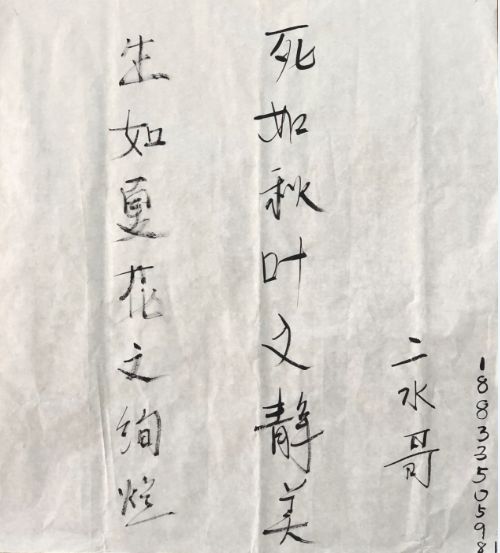 生如夏花之绚烂
死如秋叶之静美
二水哥
1883350598